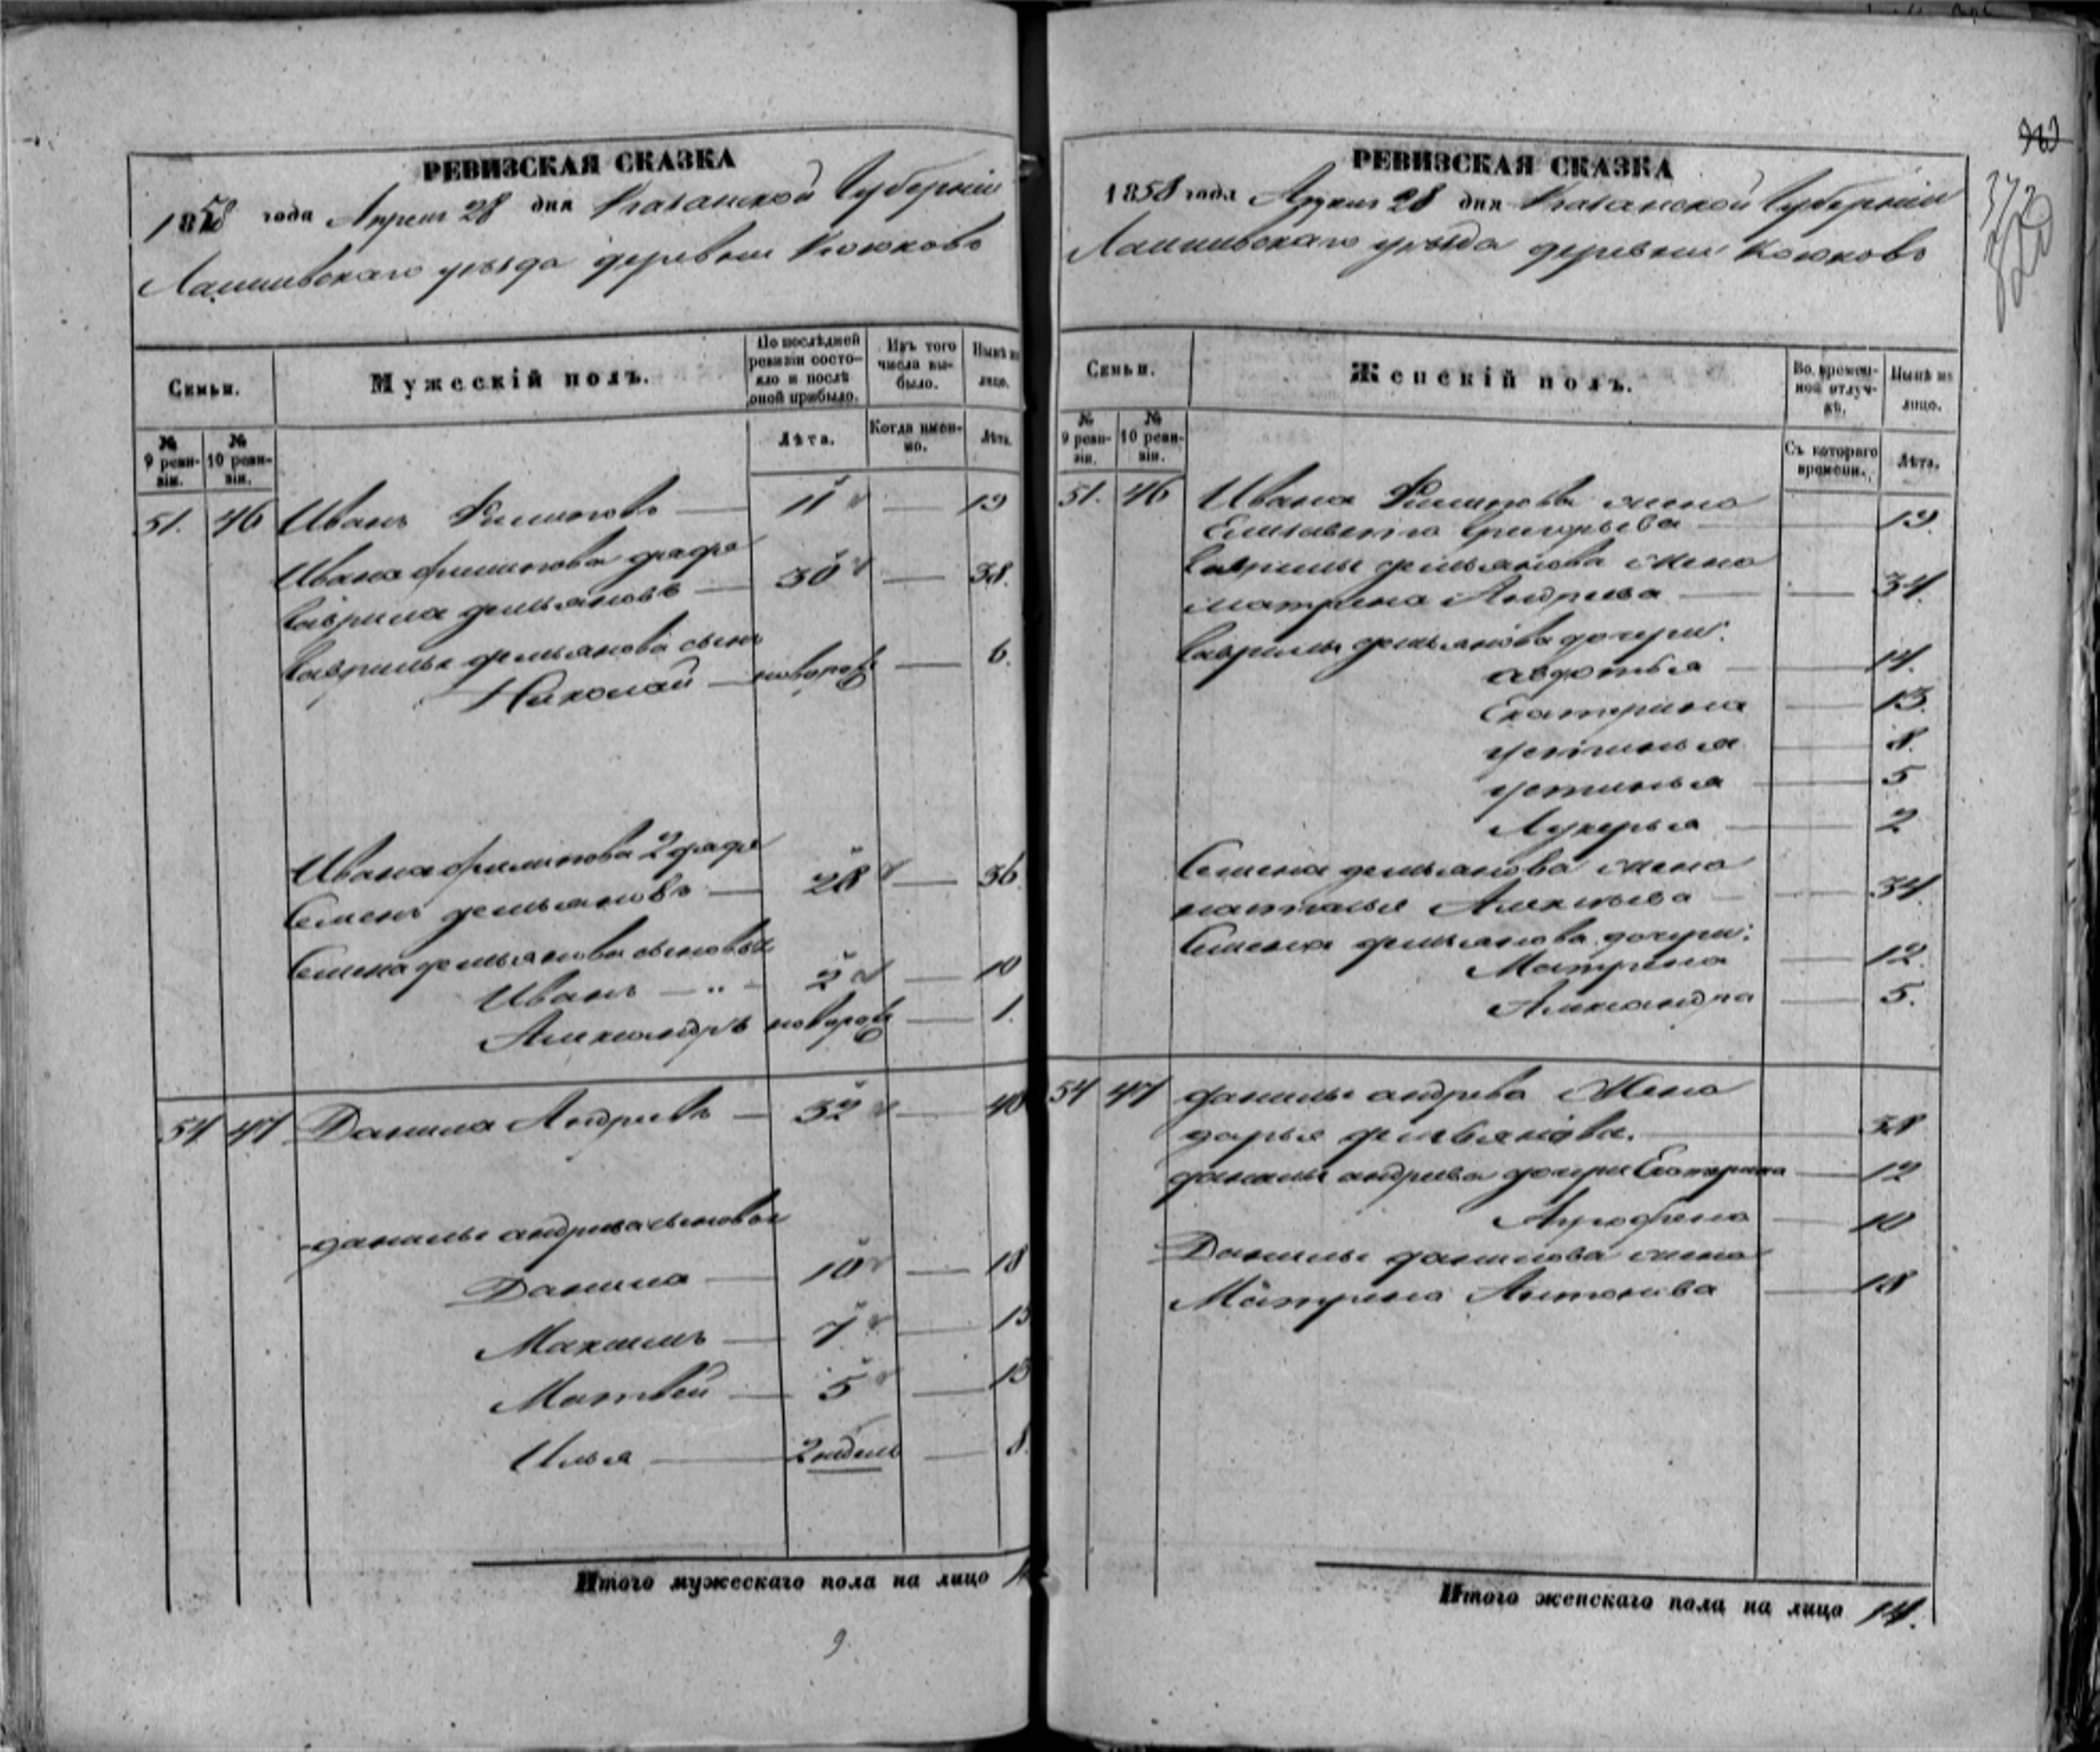 РЕВИЗСКАЯ СКАЗКА
1858 года Апреля 28 дня Казанской Губернии
Лаишевскаго уезда деревни Кзюково
Семьи.
Мужескій полъ.
По послѣдней ревизіи состояло и послѣ оной прибыло.
Изъ того числа выбыло.
Нынѣ на лицо.
№ 9 ревизіи.
№ 10 ревизіи.
Лѣта.
Когда именно.
Лѣта.
51. 46 Иванъ Филиповъ — 11 — 19
Ивана филипова дядя
Гаврила демьяновъ — 30 — 38.
Гаврилы демьянова сынъ
Николай — новорож — 6.
Ивана филипова 2 дядя
Семенъ демьяновъ — 28 — 36
Семена демьянова сыновья
Иванъ — 2 — 10
Александръ новорож — 1.
54 47 Данила Андреевъ — 32 — 40
данилы андреева сыновья
Данила — 10 — 18
Максимъ — 7 — 15
Матвей — 5 — 13
Илья — 2 недель — 8.
Итого мужескаго пола на лицо
9
РЕВИЗСКАЯ СКАЗКА
1858 года Апреля 28 дня Казанской Губернии
Лаишевскаго уезда деревни
Семьи.
Женскій полъ.
Во временной отлучкѣ.
Нынѣ на лицо.
№ 9 ревизіи.
№ 10 ревизіи.
Съ котораго времени.
Лѣта.
51. 46 Ивана Филипова жена
Елизавета Григорьева — 19.
Гаврилы демьянова жена
матрена Андреева — 34.
Гаврилы демьянова дочери:
авдотья — 14.
Екатерина — 13.
устинья — 8.
устинья — 5
Лукерья — 2
Семена демьянова жена
наталья Алексеева — 34
Семена демьянова дочери:
Матрена — 12.
Александра — 5.
54 47 данилы андреева Жена
дарья демьянова. — 38
данилы андреева дочери Екатерина — 12
Агрофена — 10
Данилы данилова жена
Матрена Антонова — 18
Итого женскаго пола на лицо 14.